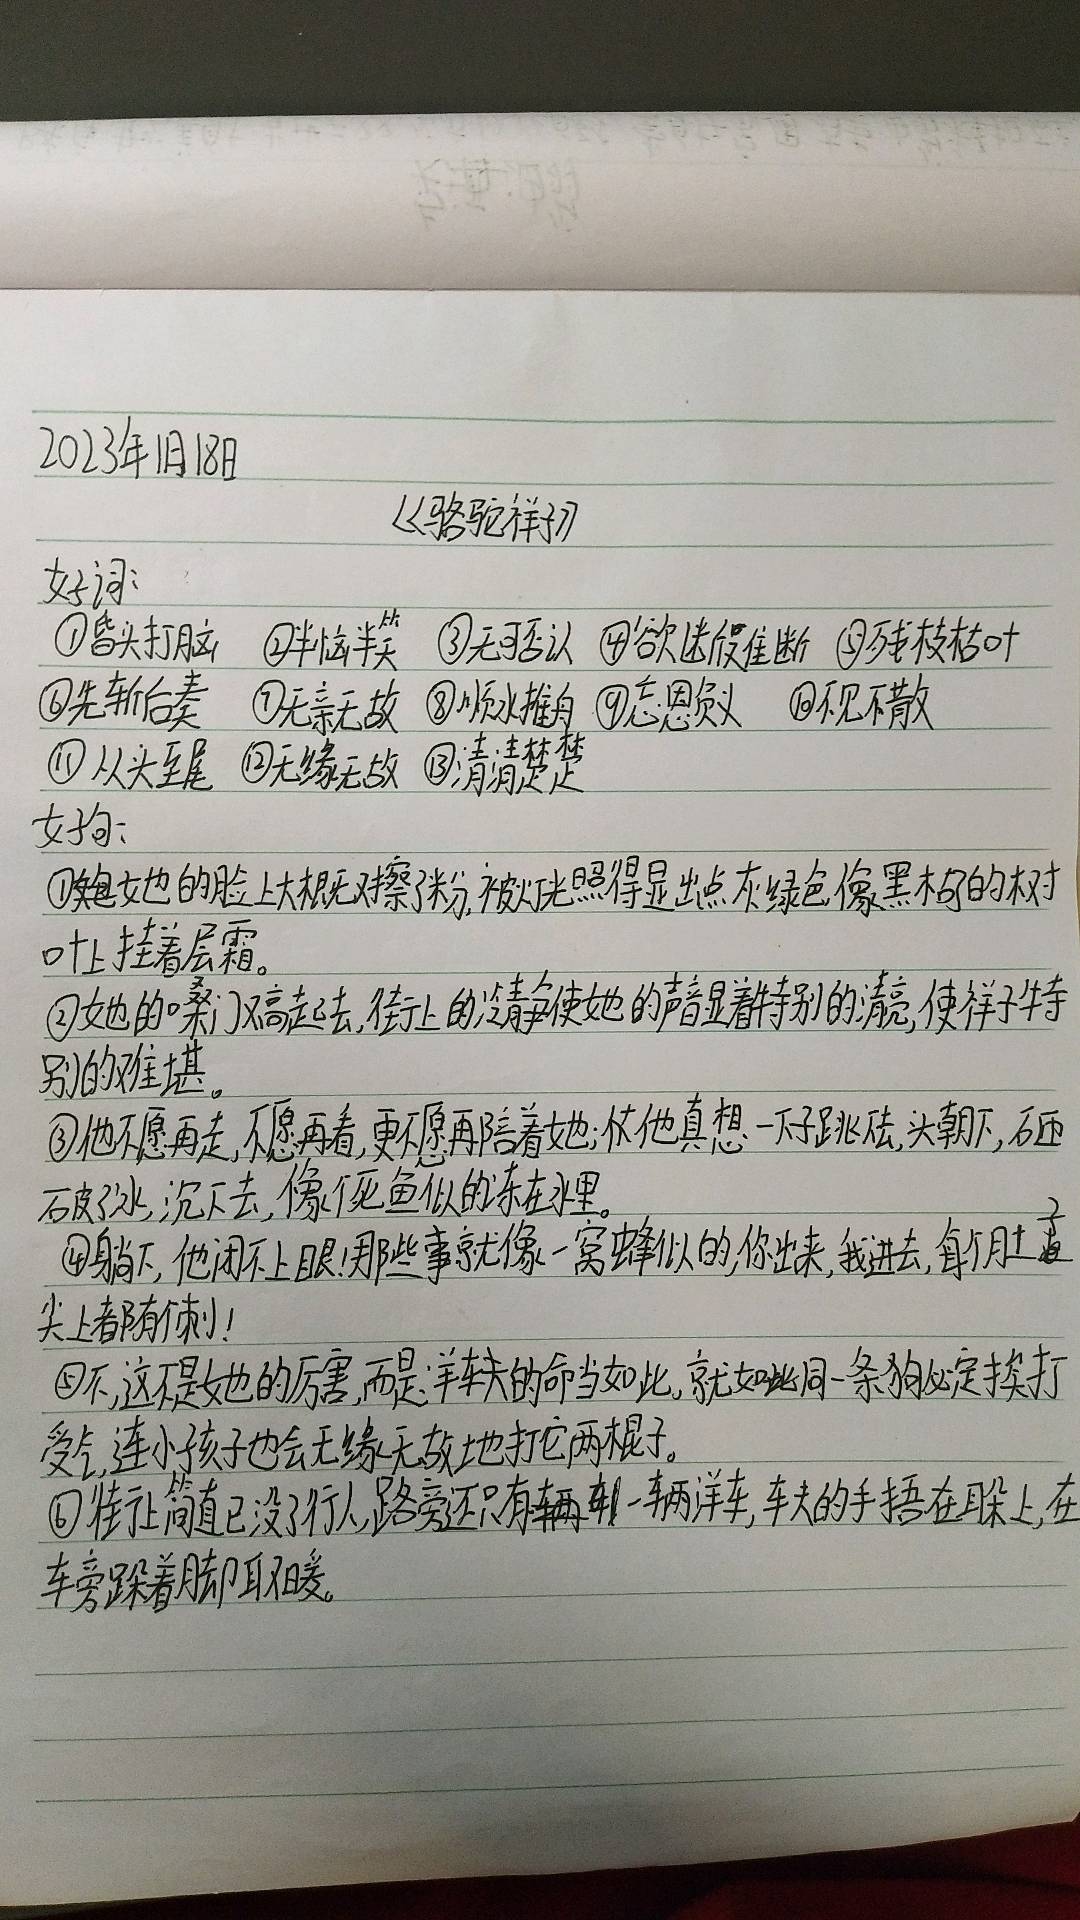 2023年1月18日
《骆驼祥子》
好词：
①昏头打脑 ②半恼半笑 ③无可否认 ④欲迷假佳断 ⑤残枝枯叶
⑥先斩后奏 ⑦无亲无故 ⑧顺水推舟 ⑨忘恩负义 ⑩不见不散
⑪从头至尾 ⑫无缘无故 ⑬清清楚楚
好句：
①她的脸上大概又擦了粉，被灯光照得显出点灰绿色，像黑枯的树
叶上挂着层霜。
②她的嗓门又高起去，街上的冷静使她的声音显着特别的清亮，使祥子特
别的难堪。
③他不愿再走，不愿再看，更不愿再陪着她；他真想一下子跳下去，头朝下，砸
破了冰，沉下去，像个死鱼似的冻在冰里。
④躺下，他闭不上眼！那些事就像一窝蜂似的，你出来，我进去，每个肚子
尖上都有个刺！
⑤不，这不是她的厉害，而是洋车夫的命当如此，就如此同一条狗必定挨打
受气，连小孩子也会无缘无故地打它两棍子。
⑥街上简直已没了行人，路旁还只有一辆洋车，车夫的手捂在耳朵上，在
车旁跺着脚取暖。